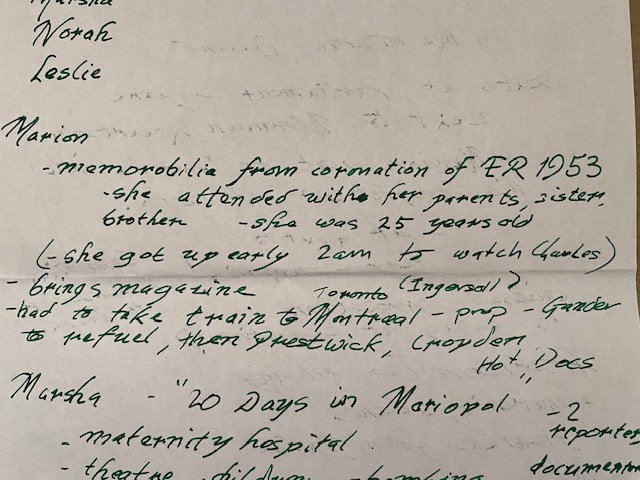 Marsha
Norah
Leslie
Marion
- memorabilia from coronation of ER 1953
- she attended with her parents, sister,
brother - she was 25 years old
(- she got up early 2am to watch Charles)
- brings magazine Toronto (Ingersoll)
- had to take train to Montreal - prop - Gander
to refuel, then Prestwick, Croydon
Hot Docs
Marsha - "20 Days in Mariopol" - 2
reporters
- maternity hospital
- theatre, children - bombing documentar